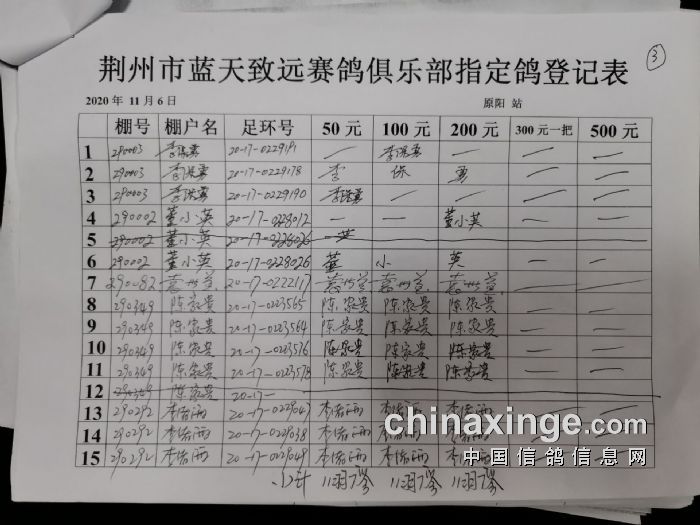 ③
荆州市蓝天致远赛鸽俱乐部指定鸽登记表
2020 年 11 月 6 日 原阳 站
棚号 棚户名 足环号 50 元 100 元 200 元 300 元一把 500 元
1 290003 李保勇 20-17-0229191 — 李保勇 — — —
2 290003 李保勇 20-17-0229178 李 保 勇 — —
3 290003 李保勇 20-17-0229190 李保勇 — — — —
4 290002 董小英 20-17-0228012 — — 董小英 — —
5 290002 董小英 20-17-0228026 英
6 290002 董小英 20-17-0228026 董 小 英 — —
7 290082 20-17-0222117 — —
8 290349 陈家贵 20-17-0223565 陈家贵 陈家贵 陈家贵 — —
9 290349 陈家贵 20-17-0223564 陈家贵 陈家贵 陈家贵 — —
10 290349 陈家贵 20-17-0223576 陈家贵 陈家贵 陈家贵 — —
11 290349 陈家贵 20-17-0223578 陈家贵 陈家贵 陈家贵 — —
12 290349 陈家贵 20-17-
13 290292 20-17-0229047 — —
14 290292 20-17-0229038 — —
15 290292 20-17-0229049 — —
小计 11羽 11羽 11羽
chinaxinge.com
中国信鸽信息网